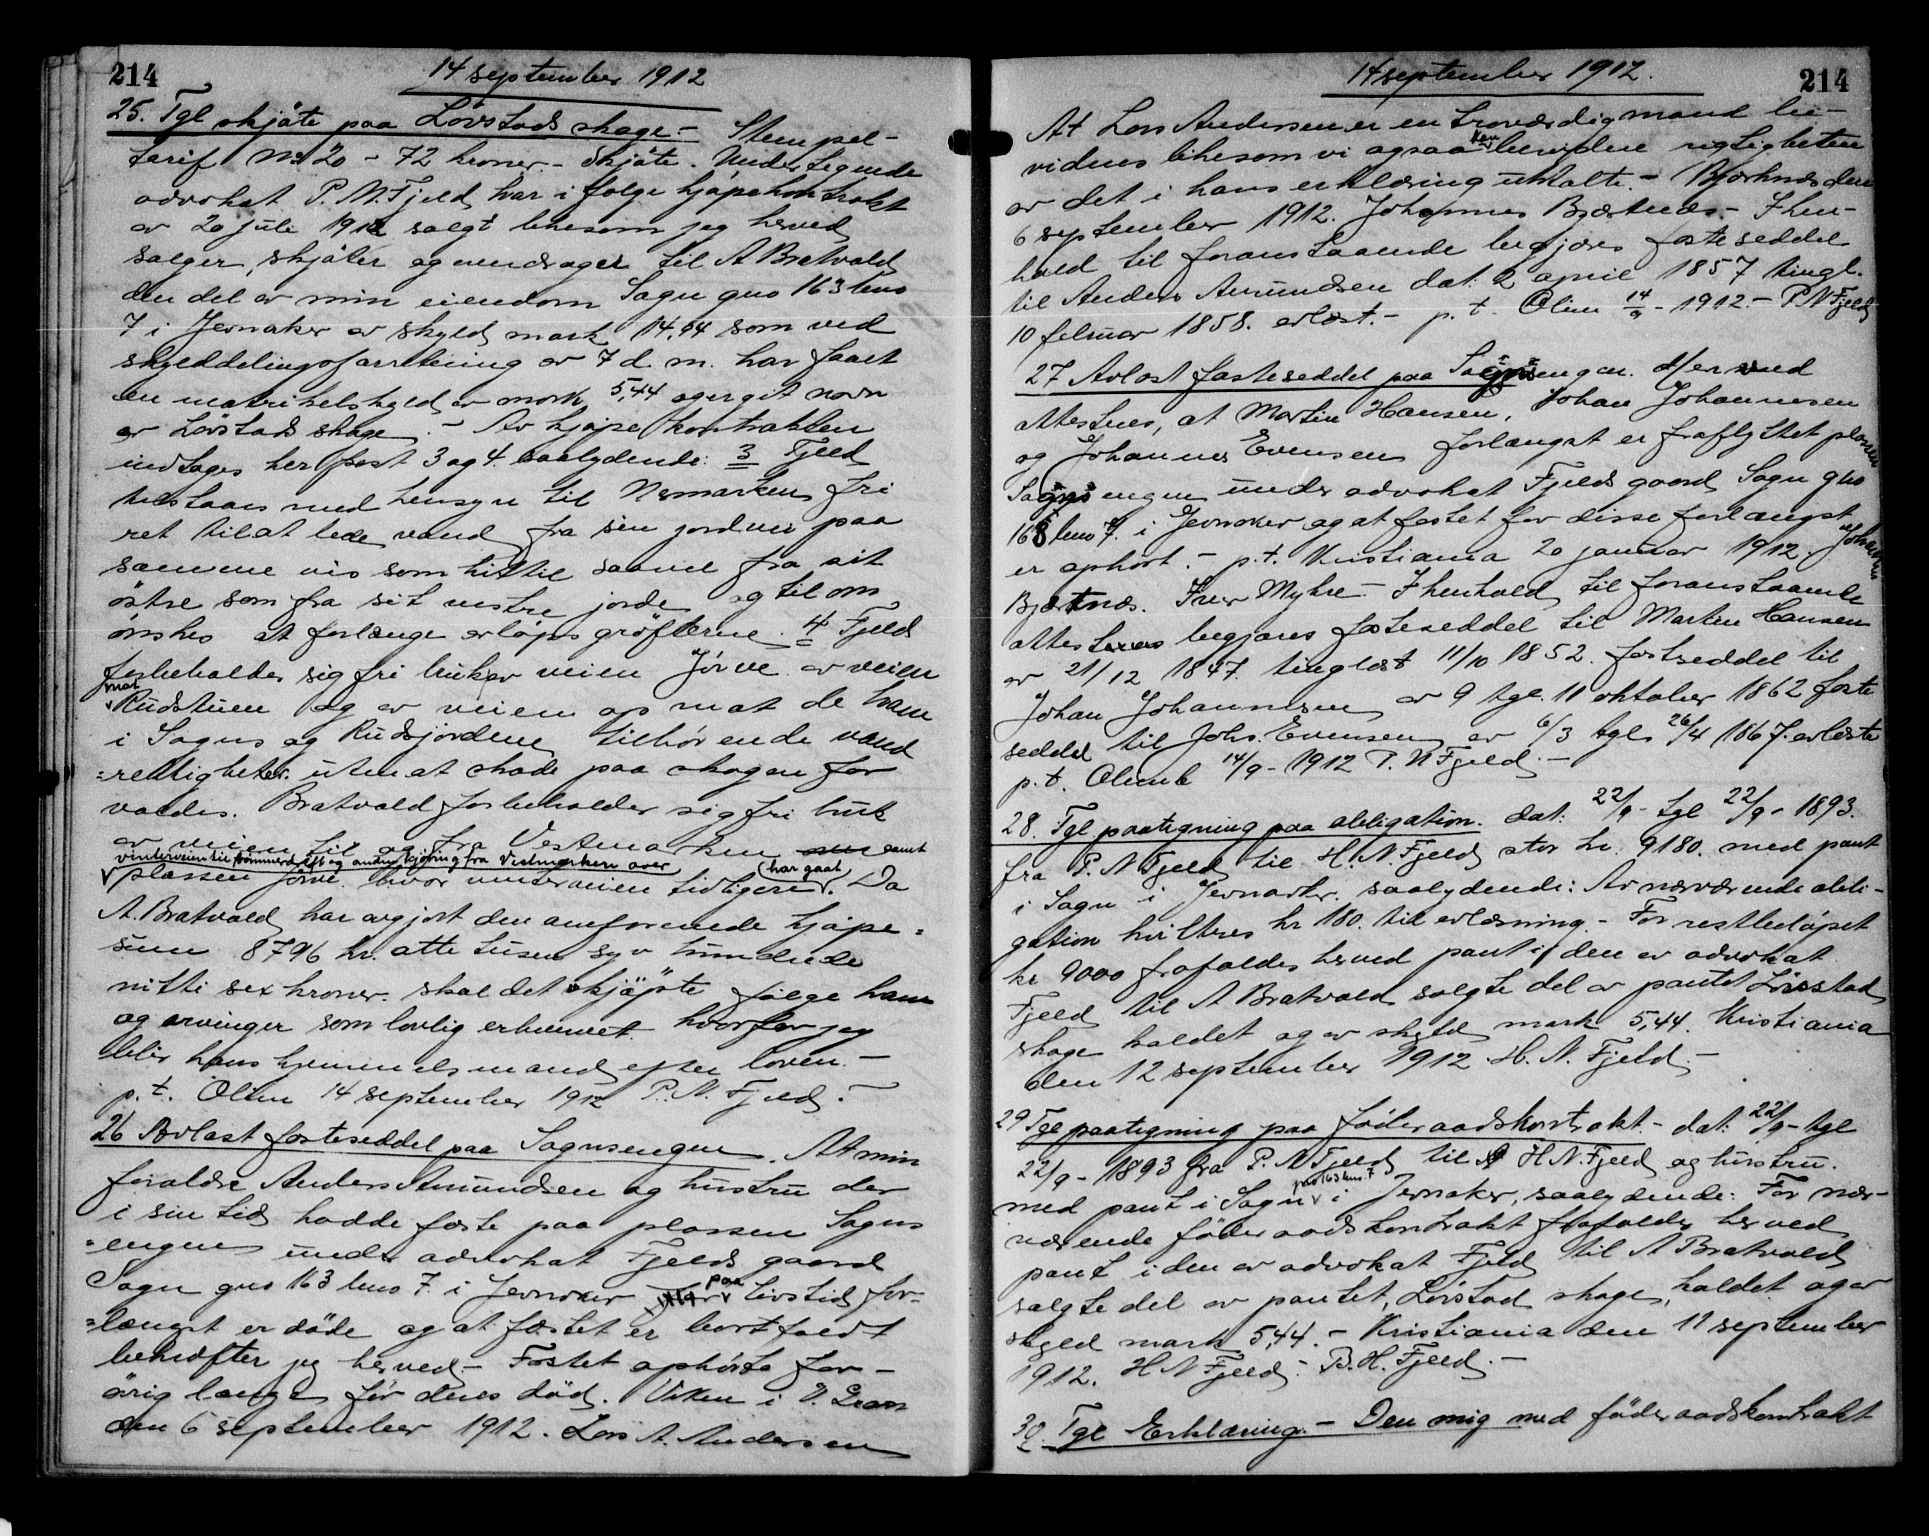 214
14 september 1912
25. Tgl skjøte paa Løvstads skage. - Stempel-
tarif No 20 - 72 kroner. - Skjøte. Undertegnede
advokat P. N. Fjeld har i følge kjøpekontrakt
av 20 juli 1912 solgt likesom jeg herved
sælger, skjøter og overdrager til A Bratvold
den del av min eiendom Sogn gno 163 bno
7 i Jevnaker av skyld mark 14,94 som ved
skylddelingsforretning av 7 d. m. har faaet
en matrikelskyld av mark 5,44 og er git navn
av Løvstads skage. - Av kjøpekontrakten
indtages her post 3 og 4. saalydende: 3 Fjeld
tilstaaes med hensyn til Nsmarken fri
ret til at lede vand fra sin jordvei paa
samme vis som hittil saavel fra sit
østre som fra sit vestre jorde og til om
ønskes at forlænge avløpsgrøfterne. 4 Fjeld
forbeholder sig fri bruk av veien Jørve av veien
mot
Rudstuen og av veien op mot de ham
i Sogn og Rudsjordene tilhørende vand
=rettigheter uten at skade paa skogen for
voldes. Bratvold forbeholder sig fri bruk
av veien til og fra Vestmarken samt
vinterveien til tømmerdrift og anden kjøring fra Vestmarken over
plassen Jørve. hvor vinterveien tidligere har gaat. Da
A. Bratvold har avgjort den omforenede kjøpe=
sum 8796 kr. otte tusen syv hundrede
nitti sex kroner. skal det skjøpte følge ham
og arvinger som lovlig erhvervet hvorfor jeg
blir hans hjemmelsmand efter loven. -
p. t. Olim 14 september 1912 P. N. Fjeld. -
26 Avlæst festeseddel paa Sognsengen. At min
forældre Anders Amundsen og hustru der
i sin tid hadde feste paa plassen Sogns
=engen under advokat Fjelds gaard
Sogn gno 163 bno 7 i Jevnaker paa livstid for-
=længst er døde og at festet er bortfaldt
bekræfter jeg herved - Festet ophørte for-
øvrig længe før deres død. Viken i V. Gran
den 6 september 1912. Lars A. Andersen
14 september 1912.
214
At Lars Andersen er en troværdig mand be-
vidnes likesom vi ogsaa kan bevidne rigtigheten
av det i hans erklæring uttalte. - Bjærtnæs den
6 september 1912. Johannes Bjærtnæs. - I hen-
hold til foranstaaende begjæres festeseddel
til Anders Amundsen dat. 2 april 1857 tingl.
10 februar 1858. avlæst. - p. t. Olim 14/9 - 1912. - P. N Fjeld
27 Avlæst festeseddel paa Sognsengen. Herved
attesteres, at Martin Hansen, Johan Johannesen
og Johannes Evensen forlængst er fraflyttet plassen
Sognsengen under advokat Fjelds gaard Sogn gno
163 bno 7. i Jevnaker og at festet for disse forlængst
er ophørt. - p. t. Kristiania 20 januar 1912. Johannes
Bjærtnæs. Iver Myhre. - I henhold til foranstaaende
attesteres begjæres festeseddel til Martin Hansen
av 21/12 1847. tinglæst 11/10 1852. festeseddel til
Johan Johannesen av 9 tgl. 11 oktober 1862 feste
seddel til Johs. Evensen av 6/3 tgl. 26/4 1867. avlæste
p. t. Olim b 14/9 - 1912 P. N Fjeld. -
28. Tgl paategning paa obligation. dat: 22/9 - tgl 22/9 - 1893.
fra P. N Fjeld til H. N. Fjeld stor kr. 9180. med pant
i Sogn i Jevnaker. saalydende: Av nærværende obli-
gation kvitteres kr 180. til avlæsning. - For restbeløpet
kr 9000 frafaldes herved pant i den av advokat
Fjeld til A Bratvold solgte del av pantet Løvstad
skage kaldet og av skyld mark 5,44. Kristiania
den 12 september 1912. H. N. Fjeld. -
29 Tgl paategning paa føderaadskontrakt. - dat: 22/9 - tgl
22/9 - 1893 fra P. N Fjeld til H N. Fjeld og hustru.
gno 163 bno 7
med pant i Sogn i Jevnaker, saalydende: For nær-
værende føderaadskontrakt frafaldes herved
pant i den av advokat Fjeld til A Bratvold
solgte del av pantet, Løvstad skage, kaldet og av
skyld mark 5,44. - Kristiania den 11 september
1912. H N Fjeld. - B. H. Fjeld. -
30. Tgl Erklæring. - Den mig med føderaadskontrakt